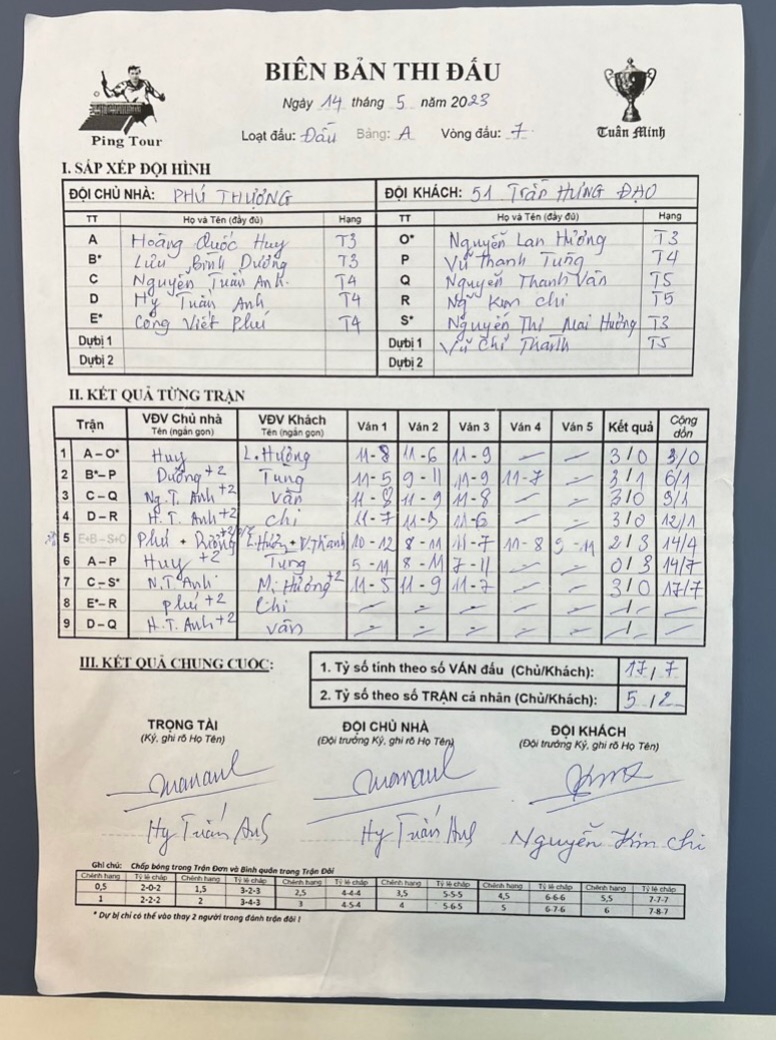 BIÊN BẢN THI ĐẤU
Ngày 14 tháng 5 năm 2023
Ping Tour
Loạt đấu: Đấu Bảng: A Vòng đấu: 7
Tuấn Minh
I. SẮP XẾP ĐỘI HÌNH
ĐỘI CHỦ NHÀ: PHÚ THƯỢNG ĐỘI KHÁCH: 51 Trần HƯNG ĐẠO
TT Họ và Tên (đầy đủ) Hạng TT Họ và Tên (đầy đủ) Hạng
A Hoàng Quốc Huy T3 O* Nguyễn Lan Hương T3
B* Lưu Bình Dương T3 P Vũ Thanh Tùng T4
C Nguyễn Tuấn Anh. T4 Q Nguyễn Thanh Vân T5
D Hy Tuấn Anh T4 R Ng Kim Chi T5
E* Công Viết Phú T4 S* Nguyễn Thị Mai Hương T3
Dự bị 1 Dự bị 1 Vũ Chí Thành T5
Dự bị 2 Dự bị 2
II. KẾT QUẢ TỪNG TRẬN
Trận VĐV Chủ nhà Tên (ngắn gọn) VĐV Khách Tên (ngắn gọn) Ván 1 Ván 2 Ván 3 Ván 4 Ván 5 Kết quả Cộng dồn
1 A – O* Huy L. Hường 11-8 11-6 11-9 – – 3/0 3/0
2 B* – P Dương +2 Tùng 11-5 9-11 11-9 11-7 – 3/1 6/1
3 C – Q Ng. T. Anh +2 Vân 11-8 11-9 11-8 – – 3/0 9/1
4 D – R H. T. Anh +2 Chi 11-7 11-3 11-6 – – 3/0 12/1
5 E+B – S+O Phú + Dương L. Hường + V. Thành 10-12 8-11 11-7 11-8 9-11 2/3 14/4
6 A – P Huy +2 Tùng 5-11 8-11 7-11 0/3 14/7
7 C – S* N.T. Anh M. Hường +2 11-5 11-9 11-7 3/0 17/7
8 E* – R Phú +2 Chi – – – – – - / - –
9 D – Q H. T. Anh +2 Vân – – – – – - / - –
III. KẾT QUẢ CHUNG CUỘC:
1. Tỷ số tính theo số VÁN đấu (Chủ/Khách): 17 / 7
2. Tỷ số theo số TRẬN cá nhân (Chủ/Khách): 5 / 2
TRỌNG TÀI ĐỘI CHỦ NHÀ ĐỘI KHÁCH
(Ký, ghi rõ Họ Tên) (Đội trưởng Ký, ghi rõ Họ Tên) (Đội trưởng Ký, ghi rõ Họ Tên)
Hy Tuấn Anh Hy Tuấn Anh Nguyễn Kim Chi
Ghi chú: Chấp bóng trong Trận Đơn và Bình quân trong Trận Đôi
Chênh hạng Tỷ lệ chấp Chênh hạng Tỷ lệ chấp Chênh hạng Tỷ lệ chấp Chênh hạng Tỷ lệ chấp Chênh hạng Tỷ lệ chấp Chênh hạng Tỷ lệ chấp
0,5 2-0-2 1,5 3-2-3 2,5 4-4-4 3,5 5-5-5 4,5 6-6-6 5,5 7-7-7
1 2-2-2 2 3-4-3 3 4-5-4 4 5-6-5 5 6-7-6 6 7-8-7
* Dự bị chỉ có thể vào thay 2 người trong đánh trận đôi !